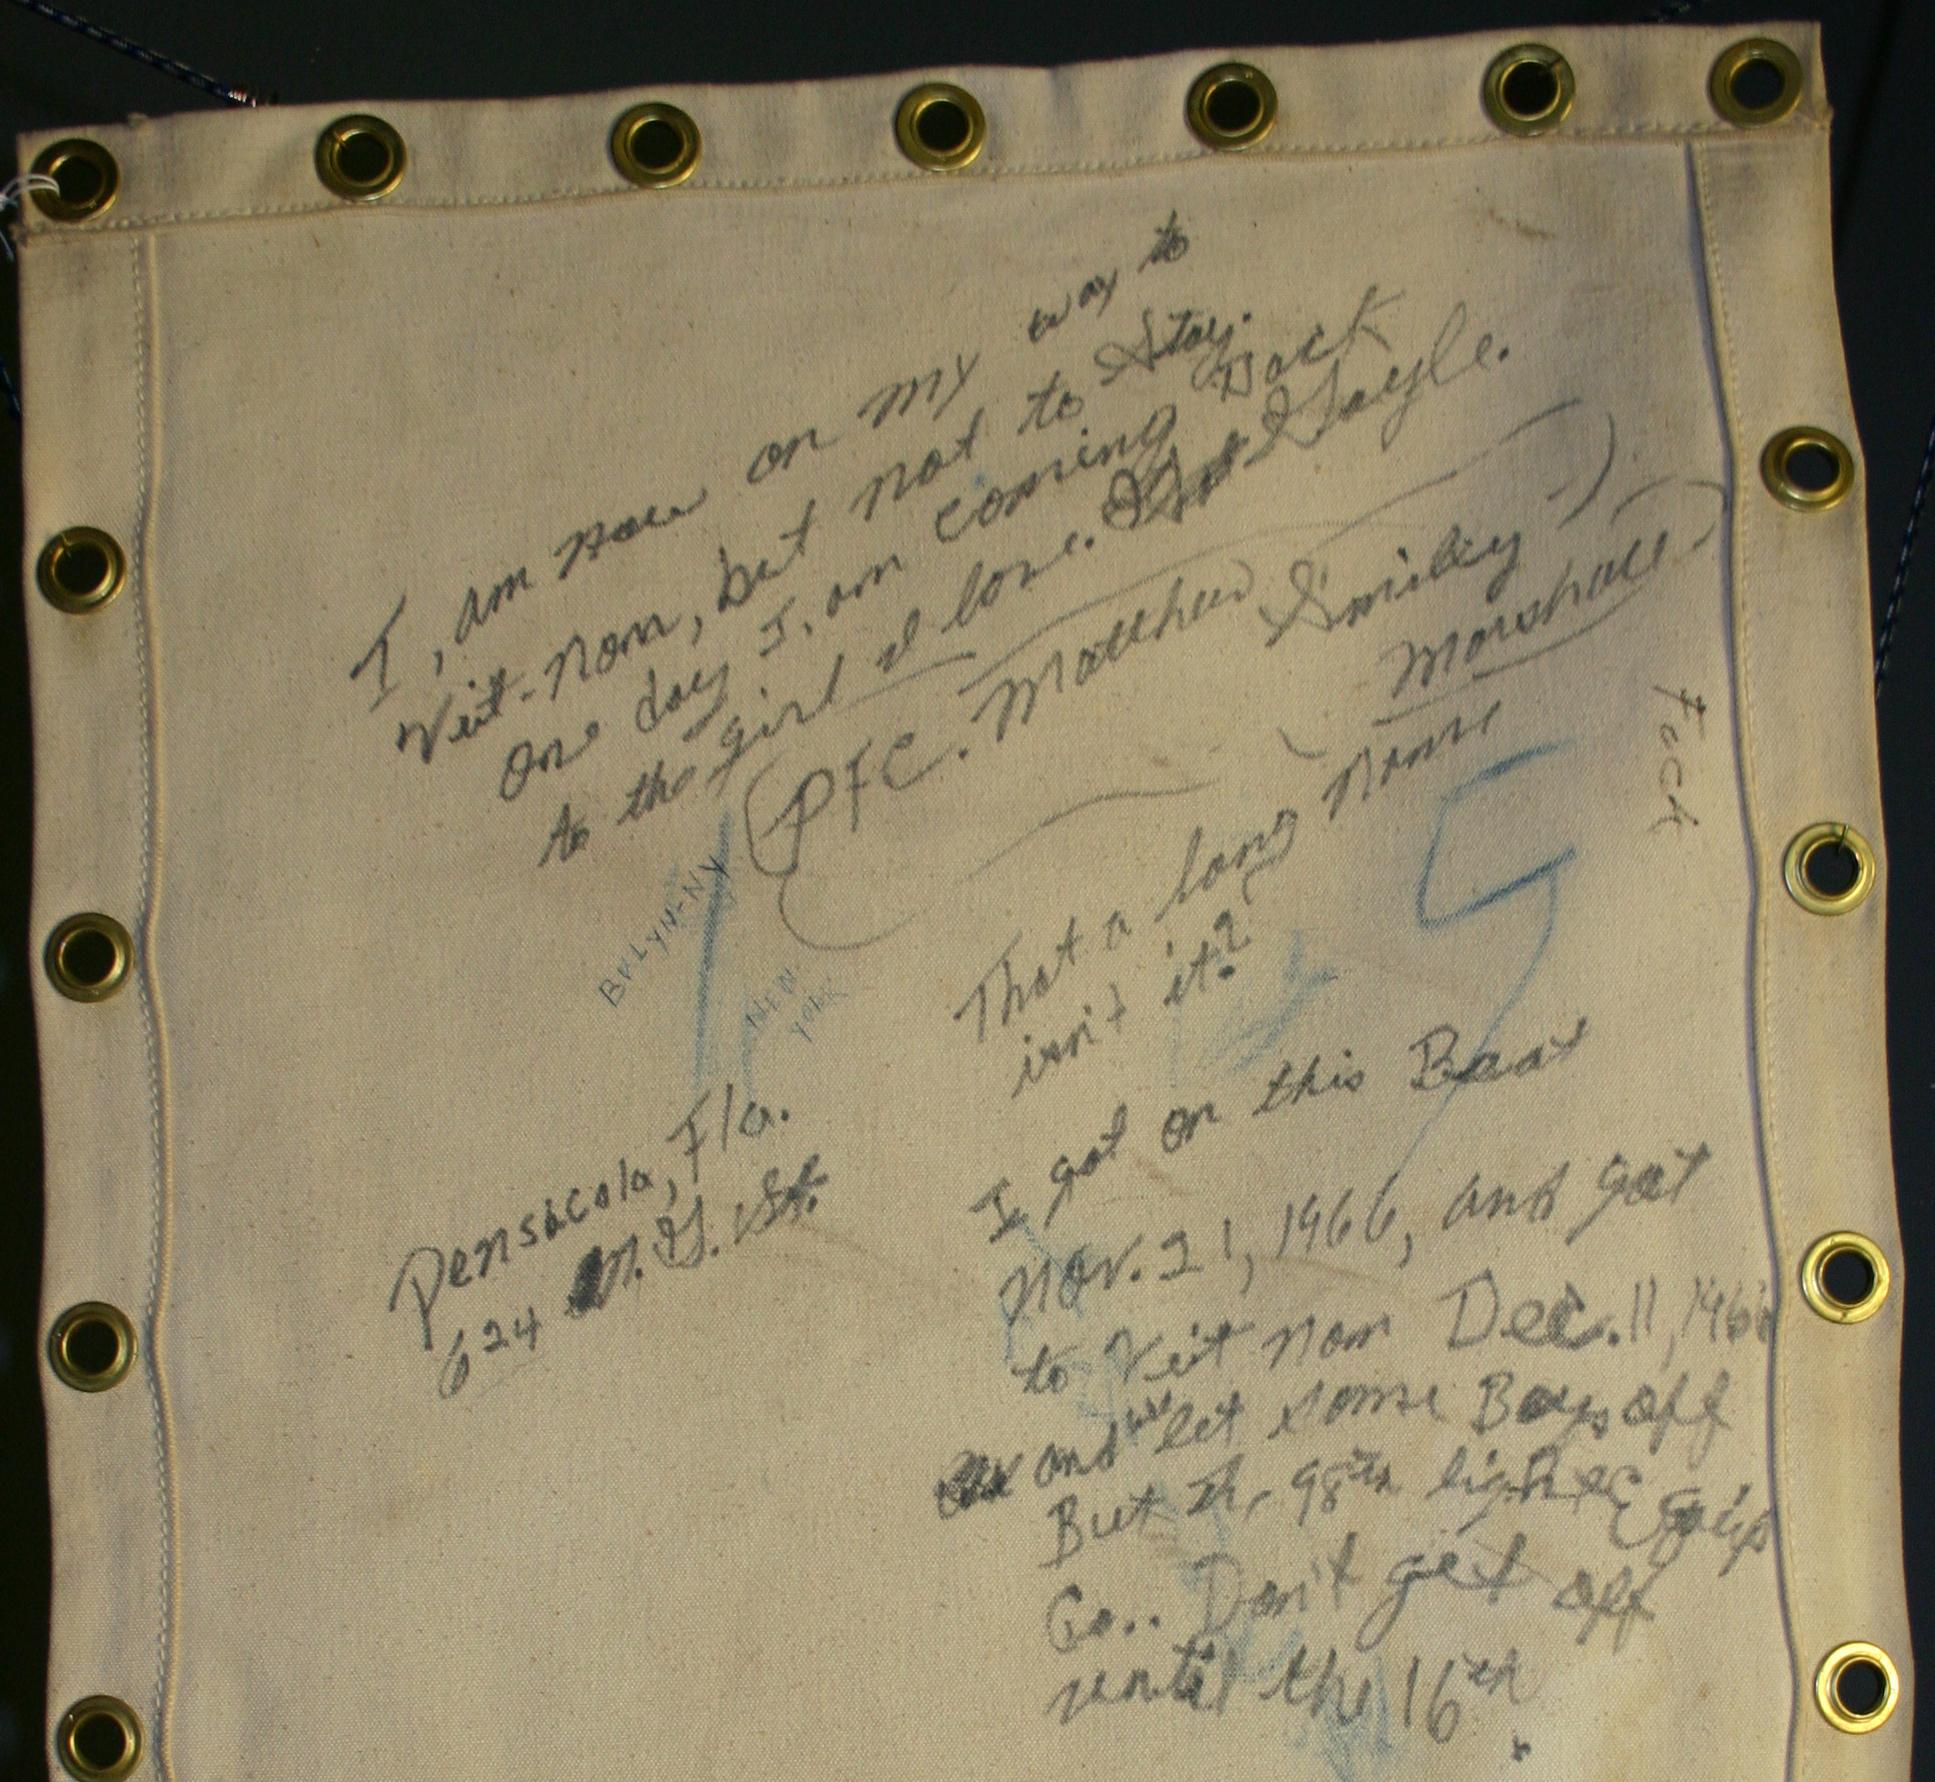 I, am now on my way to
Veit-Nam, but not to Stay.
One day I, am coming Back
to the girl I love. Gayle.
PFC. Matthew Smiley
Marshall
That a long Name
isn't it?
Fuck
BKLYN-NY
NEW
YORK
Pensacola, Fla.
624 N. G. St.
I got on this Boat
Nov. 21, 1966, and got
to Veit Nam Dec. 11, 1966
and let some Boys off
But The 98th light Equip
Co.. Don't get off
until the 16th.